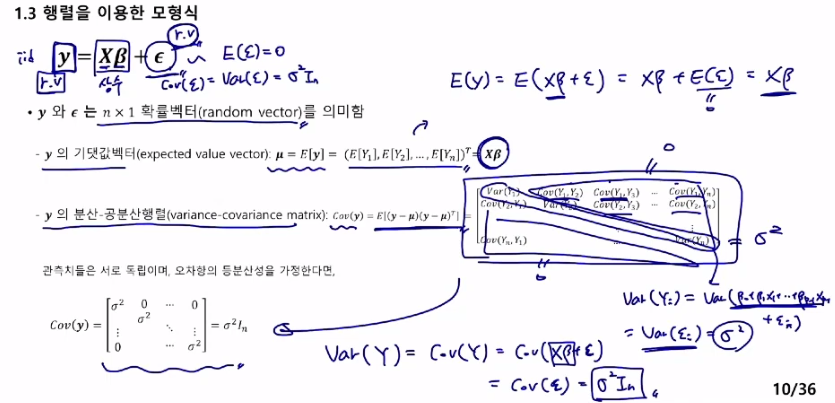 1.3 행렬을 이용한 모형식
r.v
iid y = Xβ + ϵ ~ E(ε)=0
r.v 상수 Cov(ε) = Var(ε) = σ²In
E(y) = E(Xβ+ε) = Xβ + E(ε) = Xβ
0
• y 와 ϵ 는 n × 1 확률벡터(random vector)를 의미함
- y 의 기댓값벡터(expected value vector): μ = E[y] = (E[Y₁], E[Y₂], … , E[Yₙ])ᵀ = Xβ
0
- y 의 분산-공분산행렬(variance-covariance matrix): Cov(y) = E[(y − μ)(y − μ)ᵀ] =
Var(Y₁) Cov(Y₁,Y₂) Cov(Y₁,Y₃) … Cov(Y₁,Yₙ)
Cov(Y₂,Y₁) Var(Y₂) Cov(Y₂,Y₃) … Cov(Y₂,Yₙ)
⋮
Cov(Yₙ,Y₁) … Var(Yₙ)
= σ²
0
관측치들은 서로 독립이며, 오차항의 등분산성을 가정한다면,
Cov(y) =
σ² 0 ⋯ 0
σ²
⋮ ⋱ ⋮
0 ⋯ σ²
= σ²Iₙ
Var(Yi) = Var(β₀+β₁x₁+…+
+ εi)
= Var(εi) = σ²
Var(Y) = Cov(Y) = Cov(Xβ+ε)
= Cov(ε) = σ²In
10/36